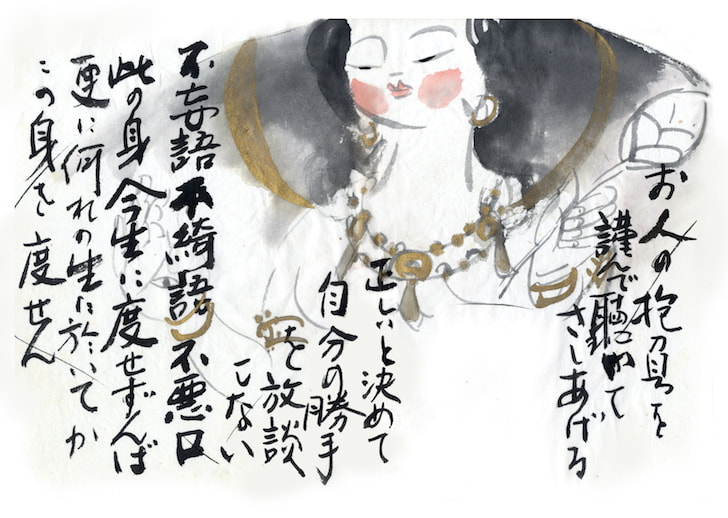 お人の抱負を
謹んで聴いて
さしあげる
正しいと決めて
自分の勝手
を放談
しない
不妄語 不綺語 不悪口
此の身今生に度せずんば
更に何れの生に於いてか
この身を度せん